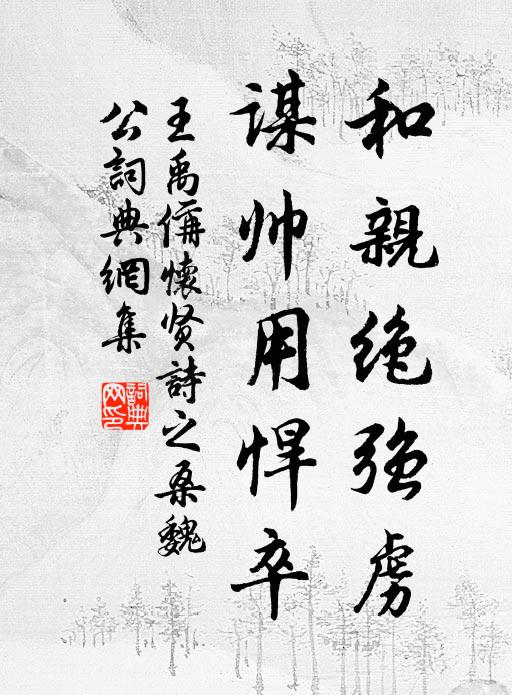 和親绝强虏
谋帅用悍卒
王禹偁懷贤詩之桑魏
公詞典網集
詞典网印